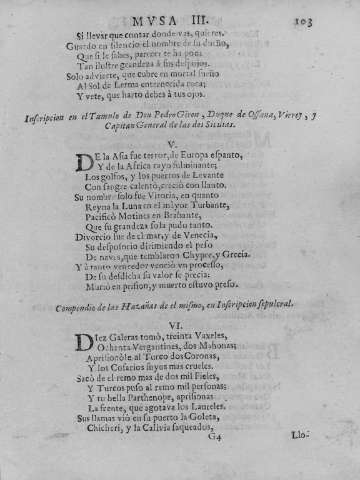 MVSA III. 103
Si llevar que contar donde vas, quieres.
Guardo en silencio el nombre de su dueño,
Que si le sabes, parecerte ha poca
Tan ilustre grandeza á sus despojos.
Solo advierte, que cubre en mortal sueño
Al Sol de Lerma enternecida roca;
Y vete, que harto debes à tus ojos.
Inscripcion en el Tumulo de Don Pedro Giron, Duque de Ossuna, Virrey, y
Capitan General de las dos Sicilias.
V.
DE la Asia fue terror, de Europa espanto,
Y de la Africa rayo fulminante;
Los golfos, y los puertos de Levante
Con sangre calentó, creció con llanto.
Su nombre solo fue Vitoria, en quanto
Reyna la Luna en el mayor Turbante,
Pacificó Motines en Brabante,
Que su grandeza sola pudo tanto.
Divorcio fue de el mar, y de Venecia,
Su desposorio dirimiendo el peso
De naves, que temblaron Chypre, y Grecia.
Y à tanto vencedor venció vn processo,
De su desdicha su valor se precia:
Murió en prision, y muerto estuvo preso.
Compendio de las Hazañas de el mismo, en Inscripcion sepulcral.
VI.
DIez Galeras tomò, treinta Vaxeles,
Ochenta Vergantines, dos Mahonas;
Aprisionòle al Turco dos Coronas,
Y los Cosarios suyos mas crueles.
Sacò de el remo mas de dos mil Fieles,
Y Turcos puso al remo mil personas;
Y tu bella Parthenope, aprisionas
La frente, que agotava los Laureles.
Sus llamas vió en su puerto la Goleta,
Chicheri, y la Calivia saqueados,
G4 Llo-